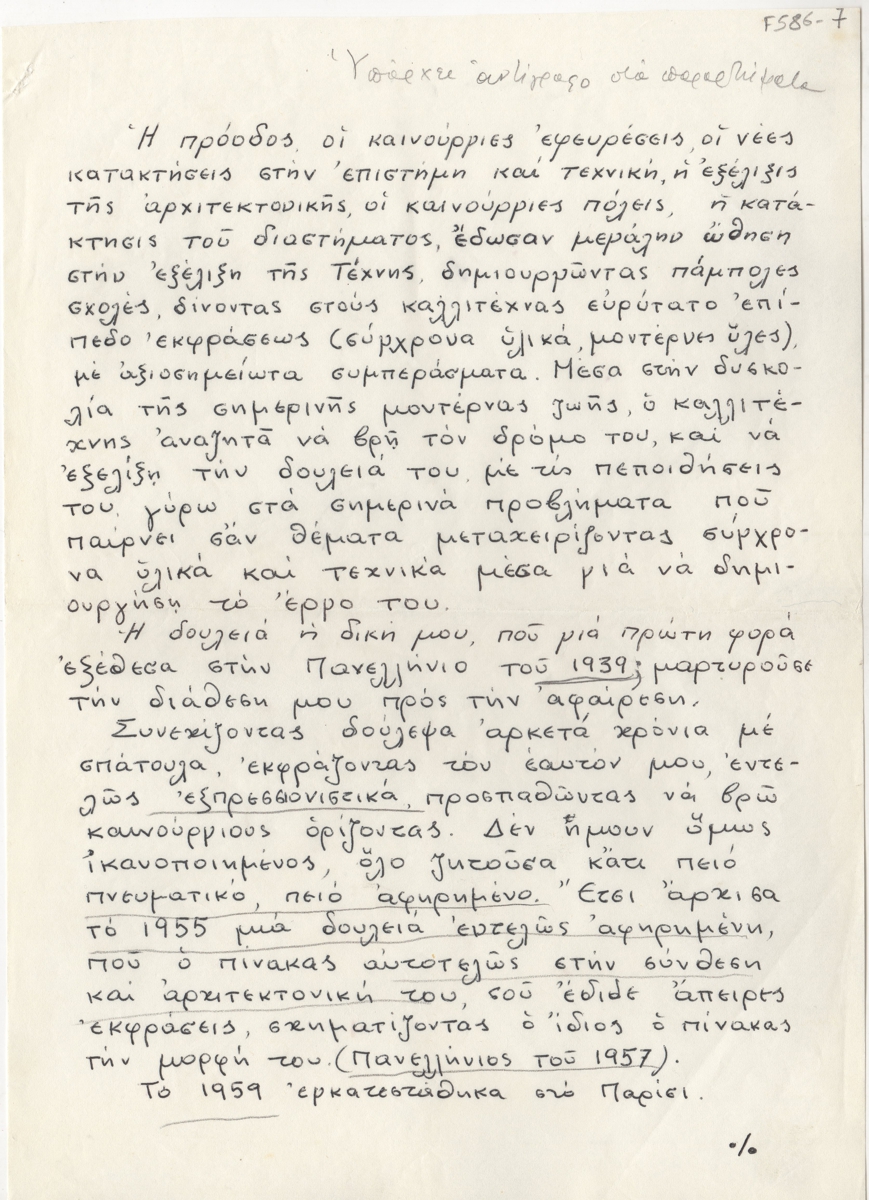 F586-7
Ὑπάρχει ἀντίγραφο στὰ παραρτήματα
Ἡ πρόοδος, οἱ καινούρριες ἐφευρέσεις, οἱ νέες
κατακτήσεις στὴν ἐπιστήμη καί τεχνική, ἡ ἐξέλιξις
τῆς ἀρχιτεκτονικῆς, οἱ καινούρριες πόλεις, ἡ κατά-
κτησις τοῦ διαστήματος, ἔδωσαν μεγάλην ὤθηση
στήν ἐξέλιξη τῆς Τέχνης, δημιουργῶντας πάμπολες
σχολές, δίνοντας στούς καλλιτέχνας εὐρύτατο ἐπί-
πεδο ἐκφράσεως (σύγχρονα ὑλικά, μοντέρνες ὗλες),
μὲ ἀξιοσημείωτα συμπεράσματα. Μέσα στήν δυσκο-
λία τῆς σημερινῆς μοντέρνας ζωῆς, ὁ καλλιτέ-
χνης ἀναζητᾶ νὰ βρῇ τὸν δρόμο του, καί νά
ἐξελίξῃ τήν δουλειά του, μὲ τίς πεποιθήσεις
του, γύρω στά σημερινά προβλήματα ποῦ
παίρνει σἄν θέματα μεταχειρίζοντας σύγχρο-
να ὑλικά καί τεχνικά μέσα γιά νά δημι-
ουργήσῃ τό ἔργο του.
Ἡ δουλειά ἡ δική μου, ποῦ μιά πρώτη φορά
ἐξέθεσα στὴν Πανελλήνιο τοῦ 1939, μαρτυροῦσε
τήν διάθεση μου πρός τήν ἀφαίρεση.
Συνεχίζοντας δούλεψα ἀρκετά χρόνια μέ
σπάτουλα, ἐκφράζοντας τόν ἑαυτόν μου, ἐντε-
λῶς ἐξπρεσσιονιστικά, προσπαθῶντας νά βρῶ
καινούργιους ὁρίζοντας. Δέν ἤμουν ὅμως
ἱκανοποιημένος, ὅλο ζητοῦσα κἄτι πειό
πνευματικό, πειό ἀφηρημένο. Ἔτσι ἄρχισα
τό 1955 μιά δουλειά ἐντελῶς ἀφηρημένη,
ποῦ ὁ πίνακας αὐτοτελῶς στήν σύνθεση
καί ἀρχιτεκτονική του, σοῦ ἔδιδε ἄπειρες
ἐκφράσεις, σχηματίζοντας ὁ ἴδιος ὁ πίνακας
τήν μορφή του. (Πανελλήνιος τοῦ 1957).
Τό 1959 ἐγκατεστάθηκα στό Παρίσι.
./.